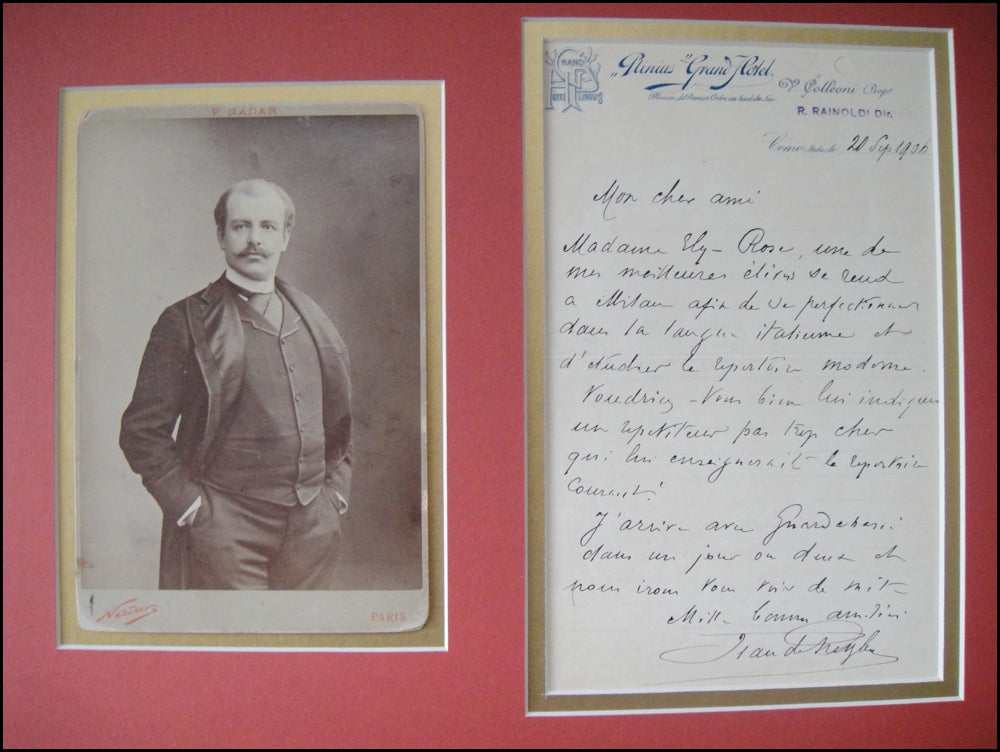 P. NADAR
Nadar
PARIS
GRAND
HOTEL PLINIUS
„Plinius" Grand Hotel
Maison de Premier Ordre au bord du Lac
Colleoni Propr
R. RAINOLDI Dir.
Como, le 20 Sep 1906
Mon cher ami
Madame Ely-Rose, une de
mes meilleures élèves se rend
a Milan afin de se perfectionner
dans la langue italienne et
d'étudier le repertoire moderne.
Voudriez-vous bien lui indiquer
un repetiteur pas trop cher
qui lui enseignerait le repertoire
Courant?
J'arrive avec
dans un jour ou deux et
nous irons vous voir de suite
Mille bonnes amitiés
Jean de Reszke